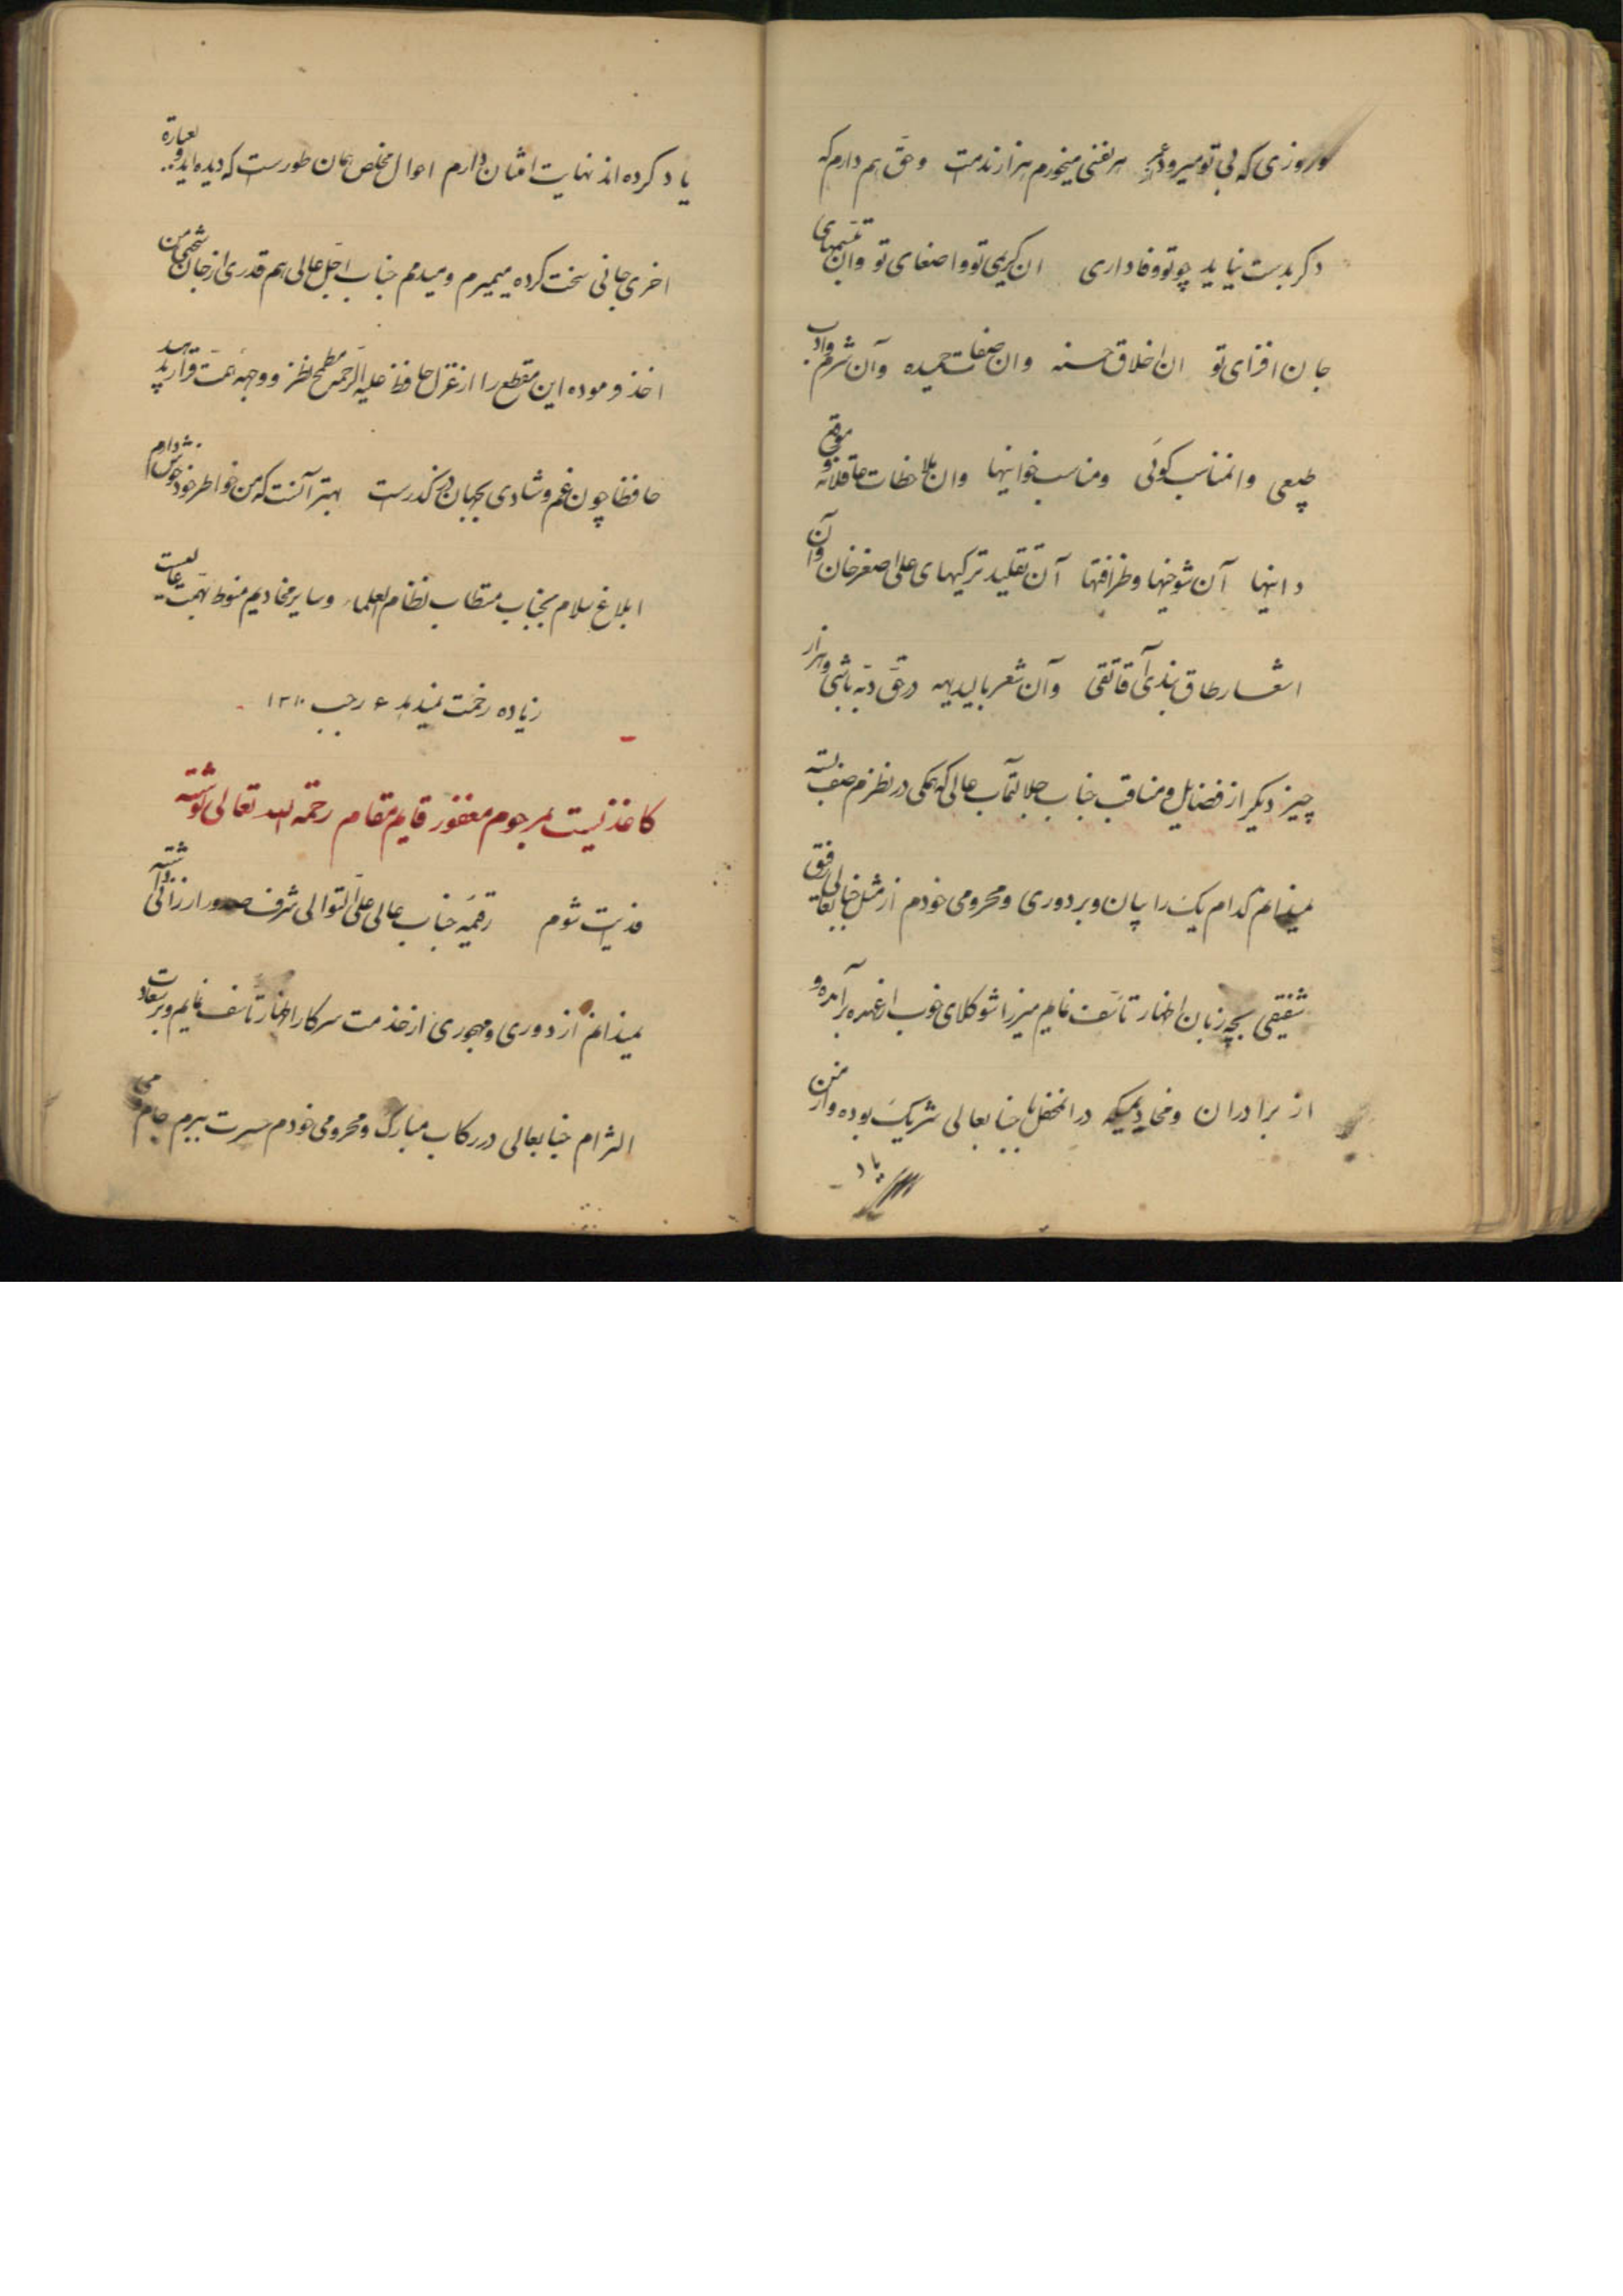 وروزی که بی تو میرود هر نفسی میخورم هزار ندمت وحق هم دارم که
دکر بدست نیاید چو تو وفاداری ان کریمی تو واصغای تو وان تبسمهای
جان افزای تو ان اخلاق حسنه وان صفات حمیده وآن شرم وادب
طبیعی وانمناسب کوئی ومناسب خوانیها وان ملاحظات عاقلانه و موقع
دانیها آن شوخیها وظرافتها آن تقلید ترکیهای علی اصغر خان وآن
اشعار طاق بندی آقا تقی وآن شعر بالبدیهه در حق دبه باشی وهزار
چیز دیکر از فضایل ومناقب جناب جلالتمآب عالی که همکی در نظرم صف بسته
نمیدانم کدام یک را بیان وبر دوری ومحرومی خودم از مثل جنابعالی رفیق
شفیقی بچه زبان اظهار تأسف نمایم میرزا شوکلای خوب از عهده برآمده و
از برادران ومخادیمیکه در انمحفل با جنابعالی شریک بوده واز من
یاد
یاد کرده اند نهایت امتنان دارم احوال مخلص همان طورست که دیده اید وبعبارة
اخری جانی سخت کرده میمیرم ومیدمم جناب اجل عالی هم قدری از جان سختی من
اخذ فرموده این مقطع را از غزل حافظ علیه الرحمه مطمح نظر ووجهه همت قرار بدهید
حافظا چون غم وشادی جهان در کذرست بهتر آنست که من خواطر خود خوش دارم
ابلاغ سلام بجناب مستطاب نظام العلماء وسایر مخادیم منوط بهمت عالیست
زیاده زحمت نمیدهد ۶ رجب ۱۳۱۰
کاغذیست بمرحوم مغفور قایم مقام رحمه الله تعالی نوشته
فدیت شوم رقیمه جناب عالی علی التوالی شرف صدور ارزانی داشته
نمیدانم از دوری ومهجوری از خدمت سرکار اظهار تأسف نمایم وبر سعادت
التزام جنابعالی در رکاب مبارک ومحرومی خودم حسرت ببرم جام می